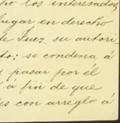 los interesados
lugar en derecho
Juez su autori
to; se condena á
pasar por él
a fin de que
con arreglo á